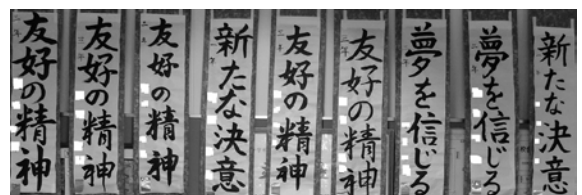 友好の精神
友好の精神
友好の精神
新たな決意
友好の精神
友好の精神
夢を信じる
夢を信じる
新たな決意